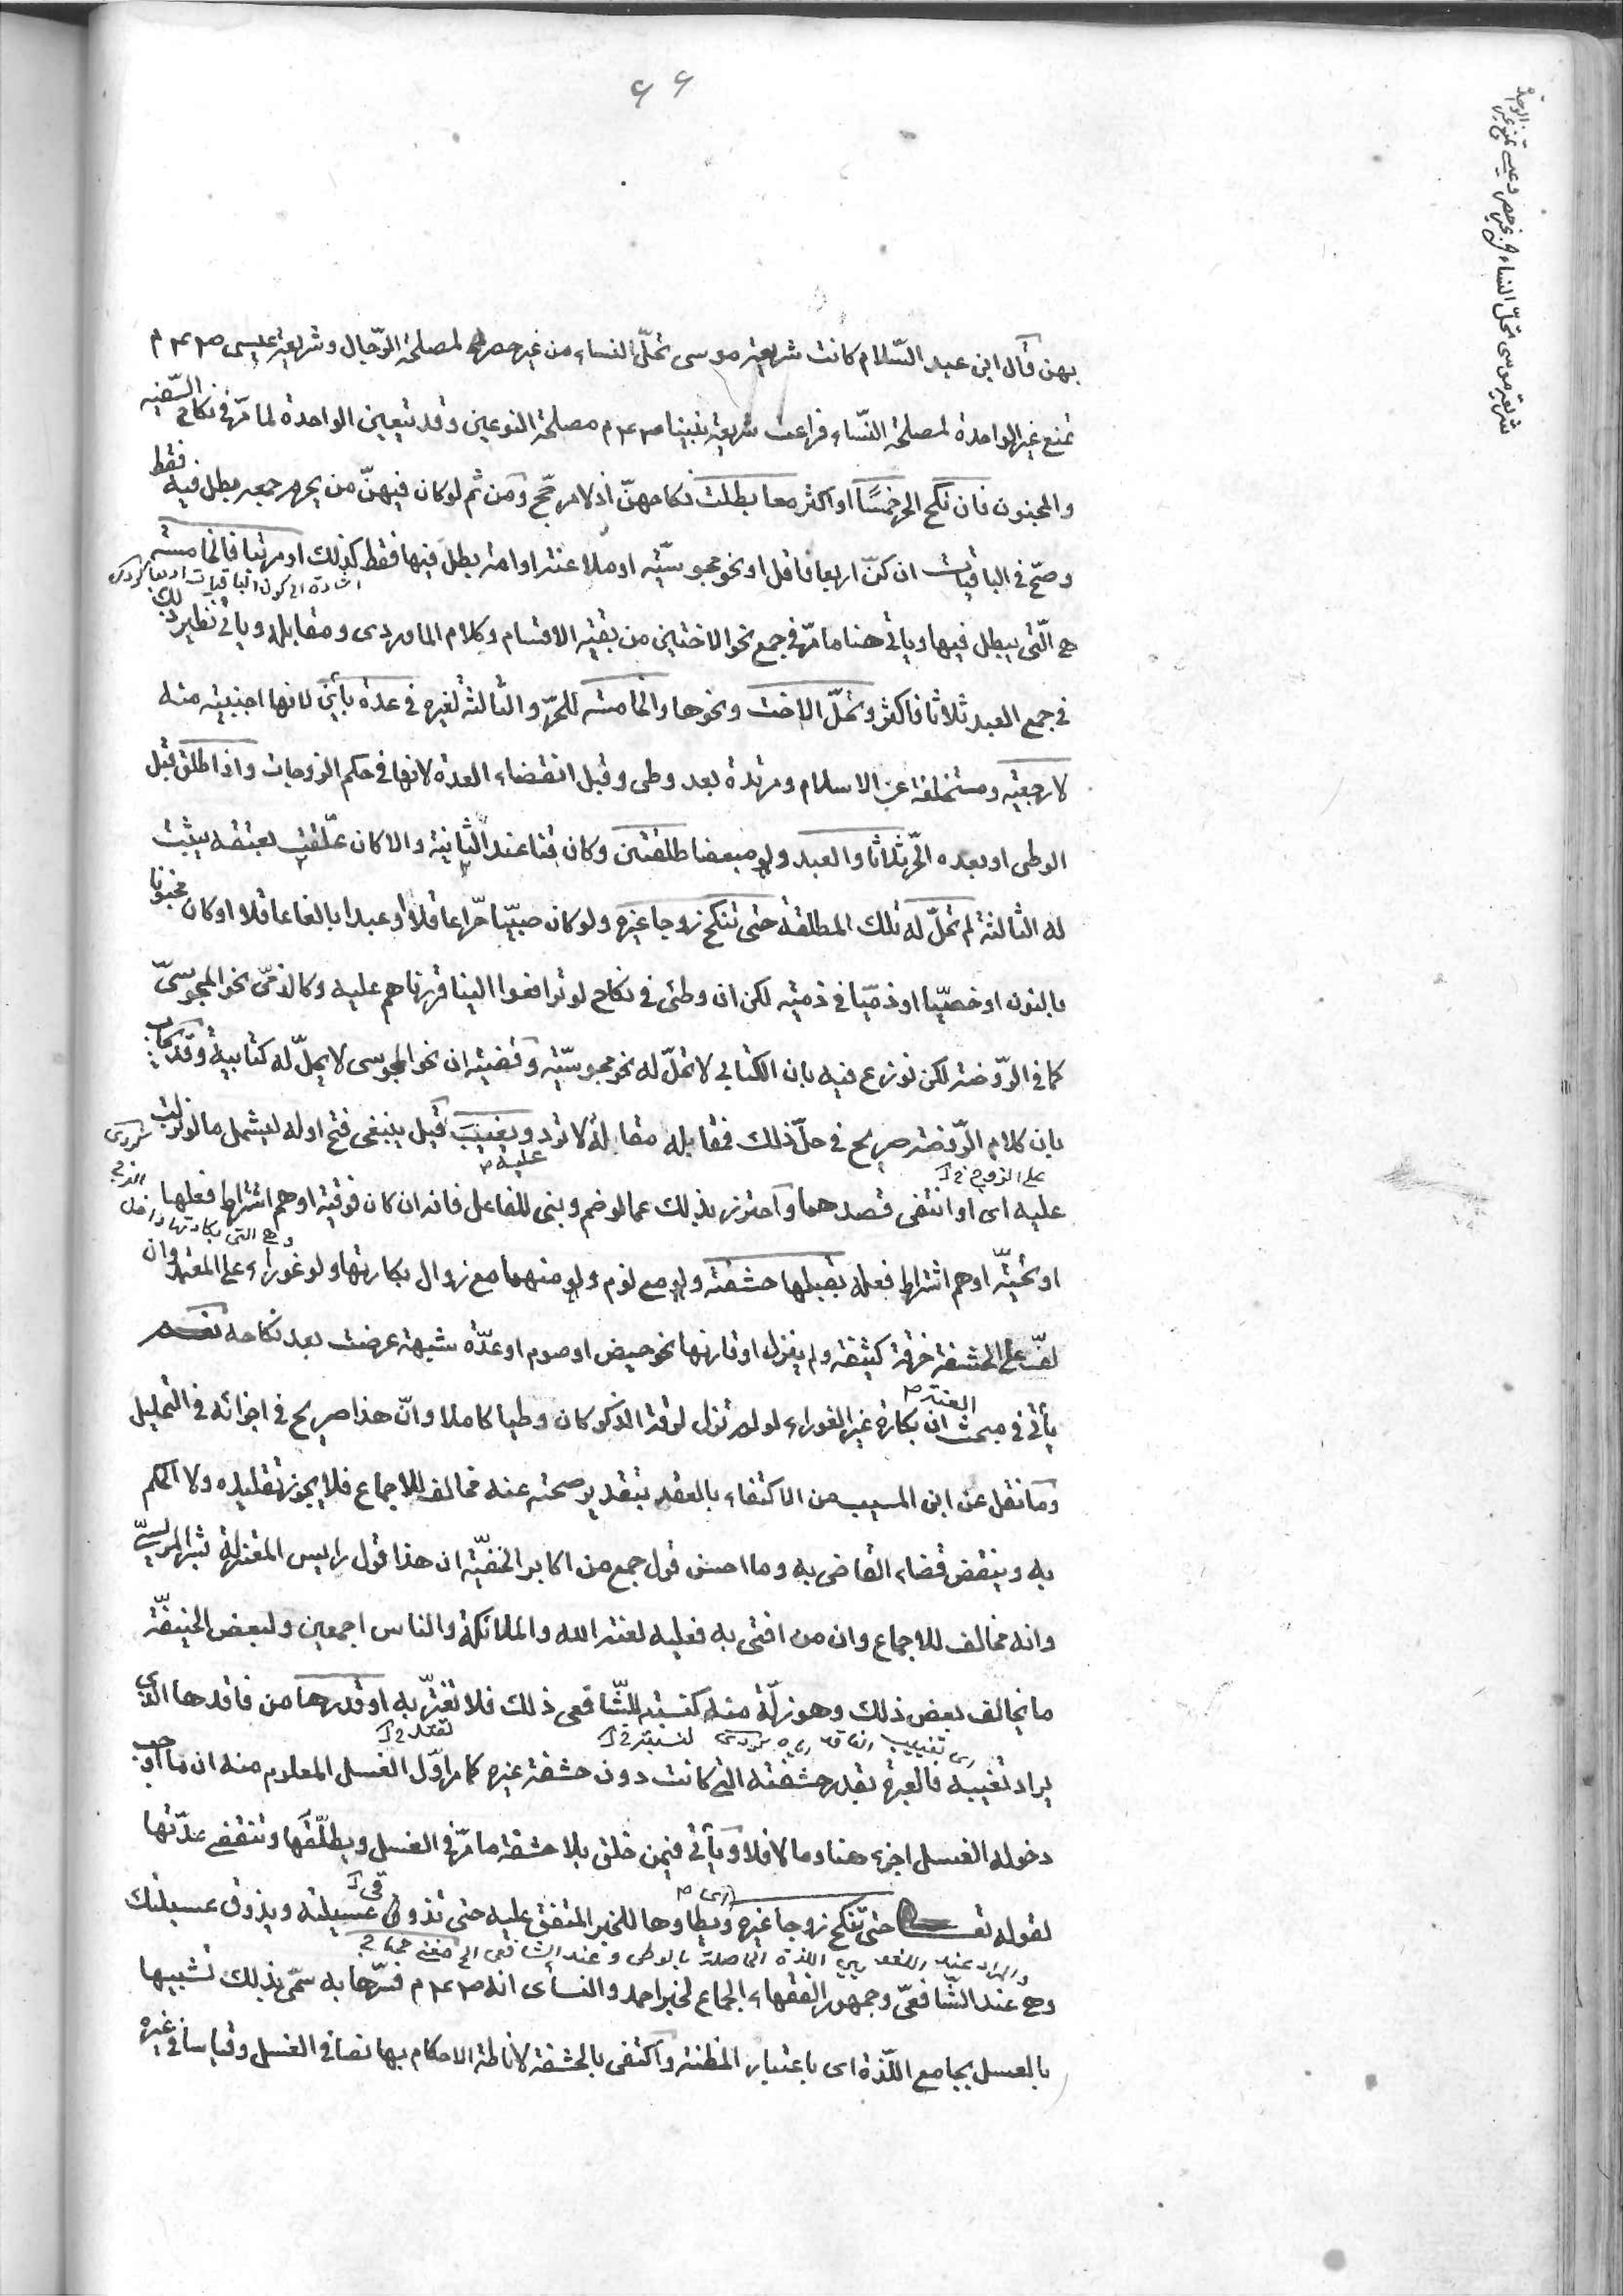 ٤٤
شريعة موسى تحلّ النساء من غير حصر وعيسى تمنع غير الواحدة
بهن قال ابن عبد السّلام كانت شريعة موسى تحلّ النساء من غير حصر لمصلحة الرّجال وشريعة عيسى ص ع م
تمنع غير الواحدة لمصلحة النّساء فراعت شريعة نبينا ص ع م مصلحة النوعين وقد تتعين الواحدة لما مرّ في نكاح السّفيه
والمجنون فان نكح الحر خمسًا او اكثر معا بطلت نكاحهنّ اذ لا مرجّح ومن ثم لو كان فيهنّ من يحرم جمعه بطل فيه فقط
وصحّ في الباقيات ان كنّ اربعا فاقل او نحو مجوسيّة او ملاعنة او امة بطل فيها فقط كذلك او مرتبا فالخامسة
اشارة الى كون الباقيات اربعا كردى
هي الّتي يبطل فيها ويأتي هنا ما مرّ في جمع نحو الاختين من بقية الاقسام وكلام الماوردى ومقابله ويأتي نظير ذلك
في جمع العبد ثلاثا فاكثر وتحلّ الاخت ونحوها والخامسة للحرّ والثالثة لغيره في عدة بأين لانها اجنبية منه
لا رجعية ومتخلفة عن الاسلام ومرتدة بعد وطى وقبل انقضاء العدة لانها في حكم الزوجات واذا طلق قبل
الوطى او بعده الحرّ ثلاثا والعبد ولو مبعضا طلقتين وكان قنا عند الثانية والا كان علّقت بعتقه يثبت
له الثالثة لم تحلّ له تلك المطلقة حتى تنكح زوجا غيره ولو كان صبيّا حرّا عاقلا او عبدا بالغا عاقلا او كان مجنونا
بالنون او خصيّا او ذميّا في ذمية لكن ان وطئ في نكاح لو ترافعوا الينا قررناهم عليه وكالذمّى نحو المجوسىّ
كما في الرّوضة لكن نوزع فيه بان الكتابي لا تحلّ له نحو مجوسيّة وقضيته ان نحو المجوسى لا يحلّ له كتابية وقد يجاب
بان كلام الرّوضة صريح في حلّ ذلك فمقابله مقالة لا ترد ويغيب قيل ينبغى فتح اوله ليشمل ما لو نزلت
على الزوج خ ا عليه م كردى
عليه اى او انتفى قصدهما واحترز بذلك عما لو ضم وبنى للفاعل فانه ان كان فوقية اوهم اشتراط فعلها
وهي التي بكارتها داخل الفرج
او تحتيّة اوهم اشتراط فعله بقبلها حشفة ولو مع نوم ولو منهما مع زوال بكارتها ولو غوراء على المعتمد وان
لفّ على الحشفة خرقة كثيفة ولم ينزل او قارنها نحو حيض او صوم او عدّة شبهة عرضت بعد نكاحه
يأتي في مبحث العنة م ان بكارة غير الغوراء لو لم تزل لرقة الذكر كان وطيا كاملا وانّ هذا صريح في اجزائه في التحليل
وما نقل عن ابن المسيب من الاكتفاء بالعقد بتقدير صحته عنه مخالف للاجماع فلا يجوز تقليده ولا الحكم
به وينقض قضاء القاضى به وما احسن قول جمع من اكابر الحنفيّة ان هذا قول رايس المعتزلة بشر المريسىّ
وانه مخالف للاجماع وان من افتى به فعليه لعنة الله والملائكة والناس اجمعين ولبعض الحنيفيّة
ما يخالف بعض ذلك وهو زلّة منه كنسبته للشّافعى ذلك فلا تغترّ به او قدرها من فاقدها الذى
اى تغييب الفاقد اياه كردى لنسبة خ ا
يراد تغيبه فالعبرة بقدر حشفته التي كانت دون حشفة غيره كما مر اوّل الغسل المعلوم منه ان ما اوجب
دخوله الغسل اجزء هنا وما لا فلا ويأتي فيمن خلق بلا حشفة ما مرّ في الغسل ويطلّقها وتنقضى عدّتها
لقوله تعالى حتى تنكح زوجا غيره اى م ويطاوها للخبر المتفق عليه حتى تذوقى عسيلته ويذوق عسيلتك
والمراد عند اللغويين اللذة الحاصلة بالوطى وعند الشافعى الخ مغنى
وهي عند الشّافعىّ وجمهور الفقهاء الجماع لخبر احمد والنسأى انه ص ع م فسّرها به سمّى بذلك تشبيها
بالعسل بجامع اللّذة اى باعتبار المظنة واكتفى بالحشفة لاناطة الاحكام بها نصا في الغسل وقياسا في غيره